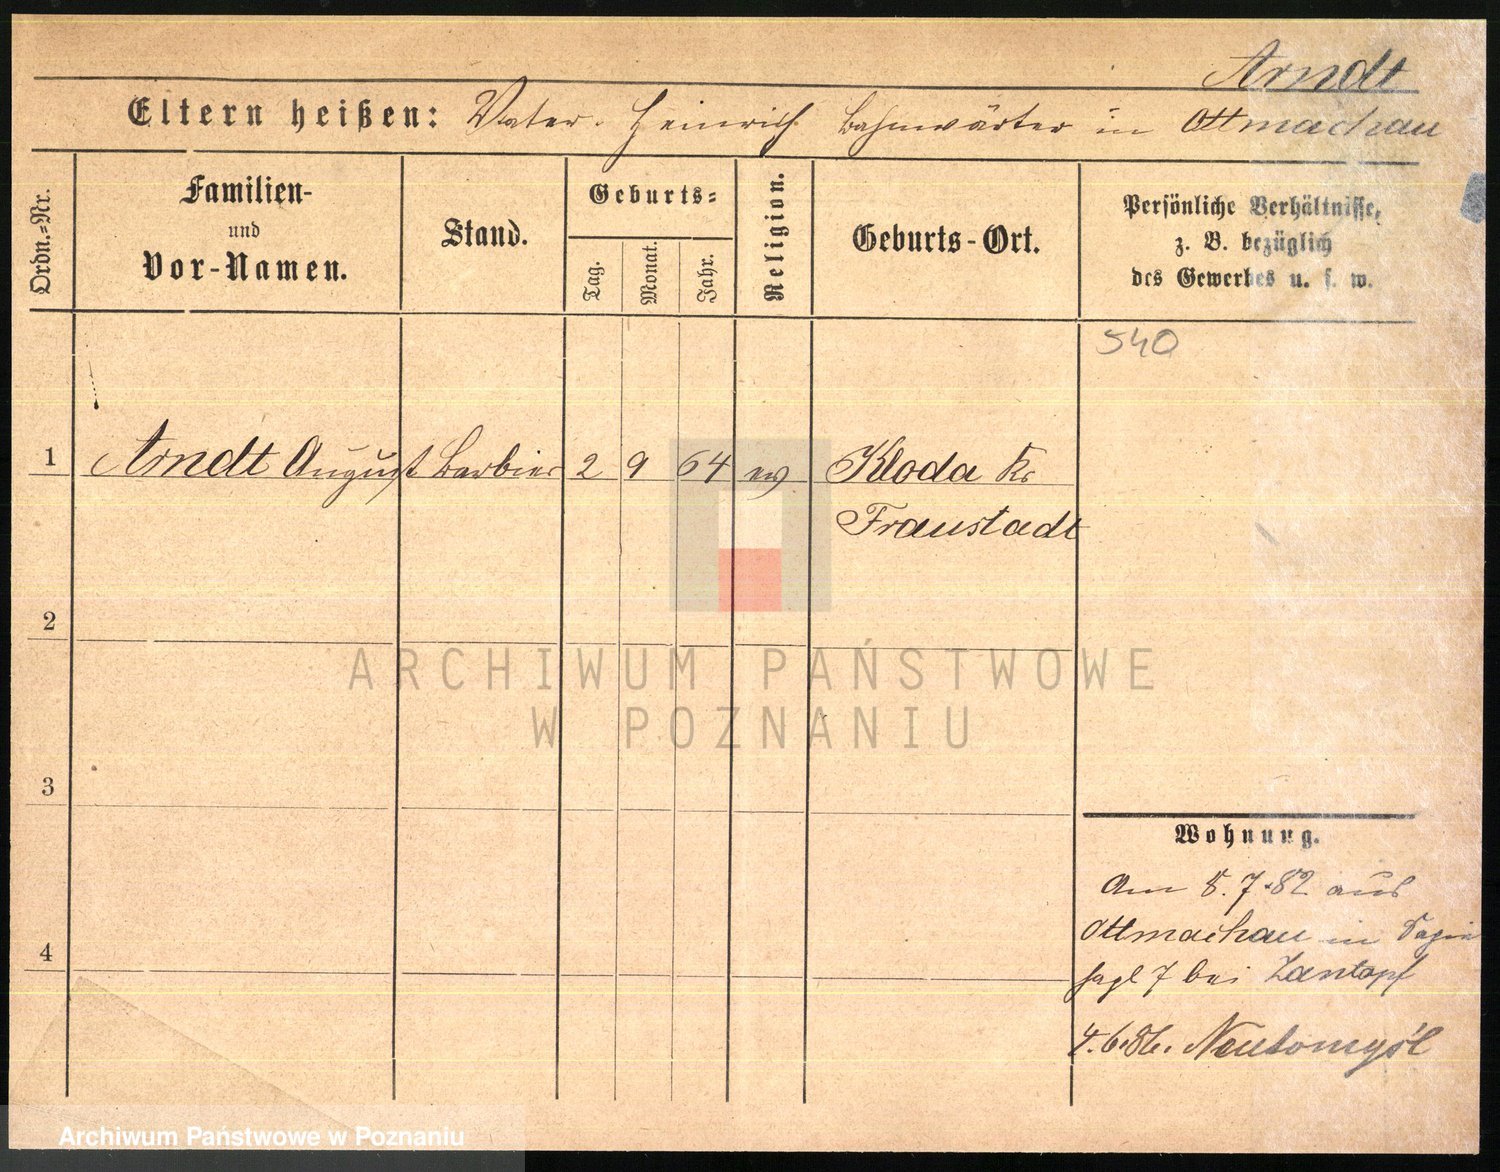 Arndt
Eltern heißen: Vater. Heinrich Bahnwärter in Ottmachau
Ordn.=Nr.
Familien-
und
Vor-Namen.
Stand.
Geburts=
Tag.
Monat.
Jahr.
Religion.
Geburts-Ort.
Persönliche Verhältnisse,
z. B. bezüglich
des Gewerbes u. s. w.
540
1 Arndt August Barbier 2 9 64 ev Kloda Kr
Fraustadt
2
3
4
Wohnung.
Am 5.7.82 aus
Ottmachau in
7 bei Zantopf
4.6.86. Neutomyśl
ARCHIWUM PAŃSTWOWE
W POZNANIU
Archiwum Państwowe w Poznaniu